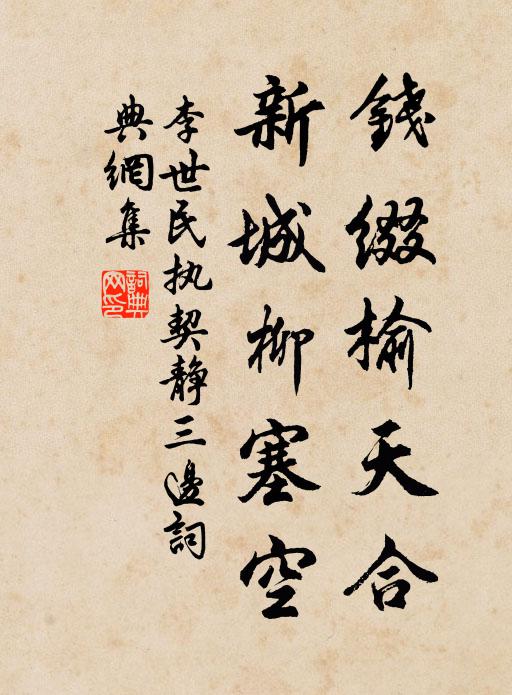 錢綴榆天合
新城柳塞空
李世民执契靜三邊詞
典網集
詞典
网印